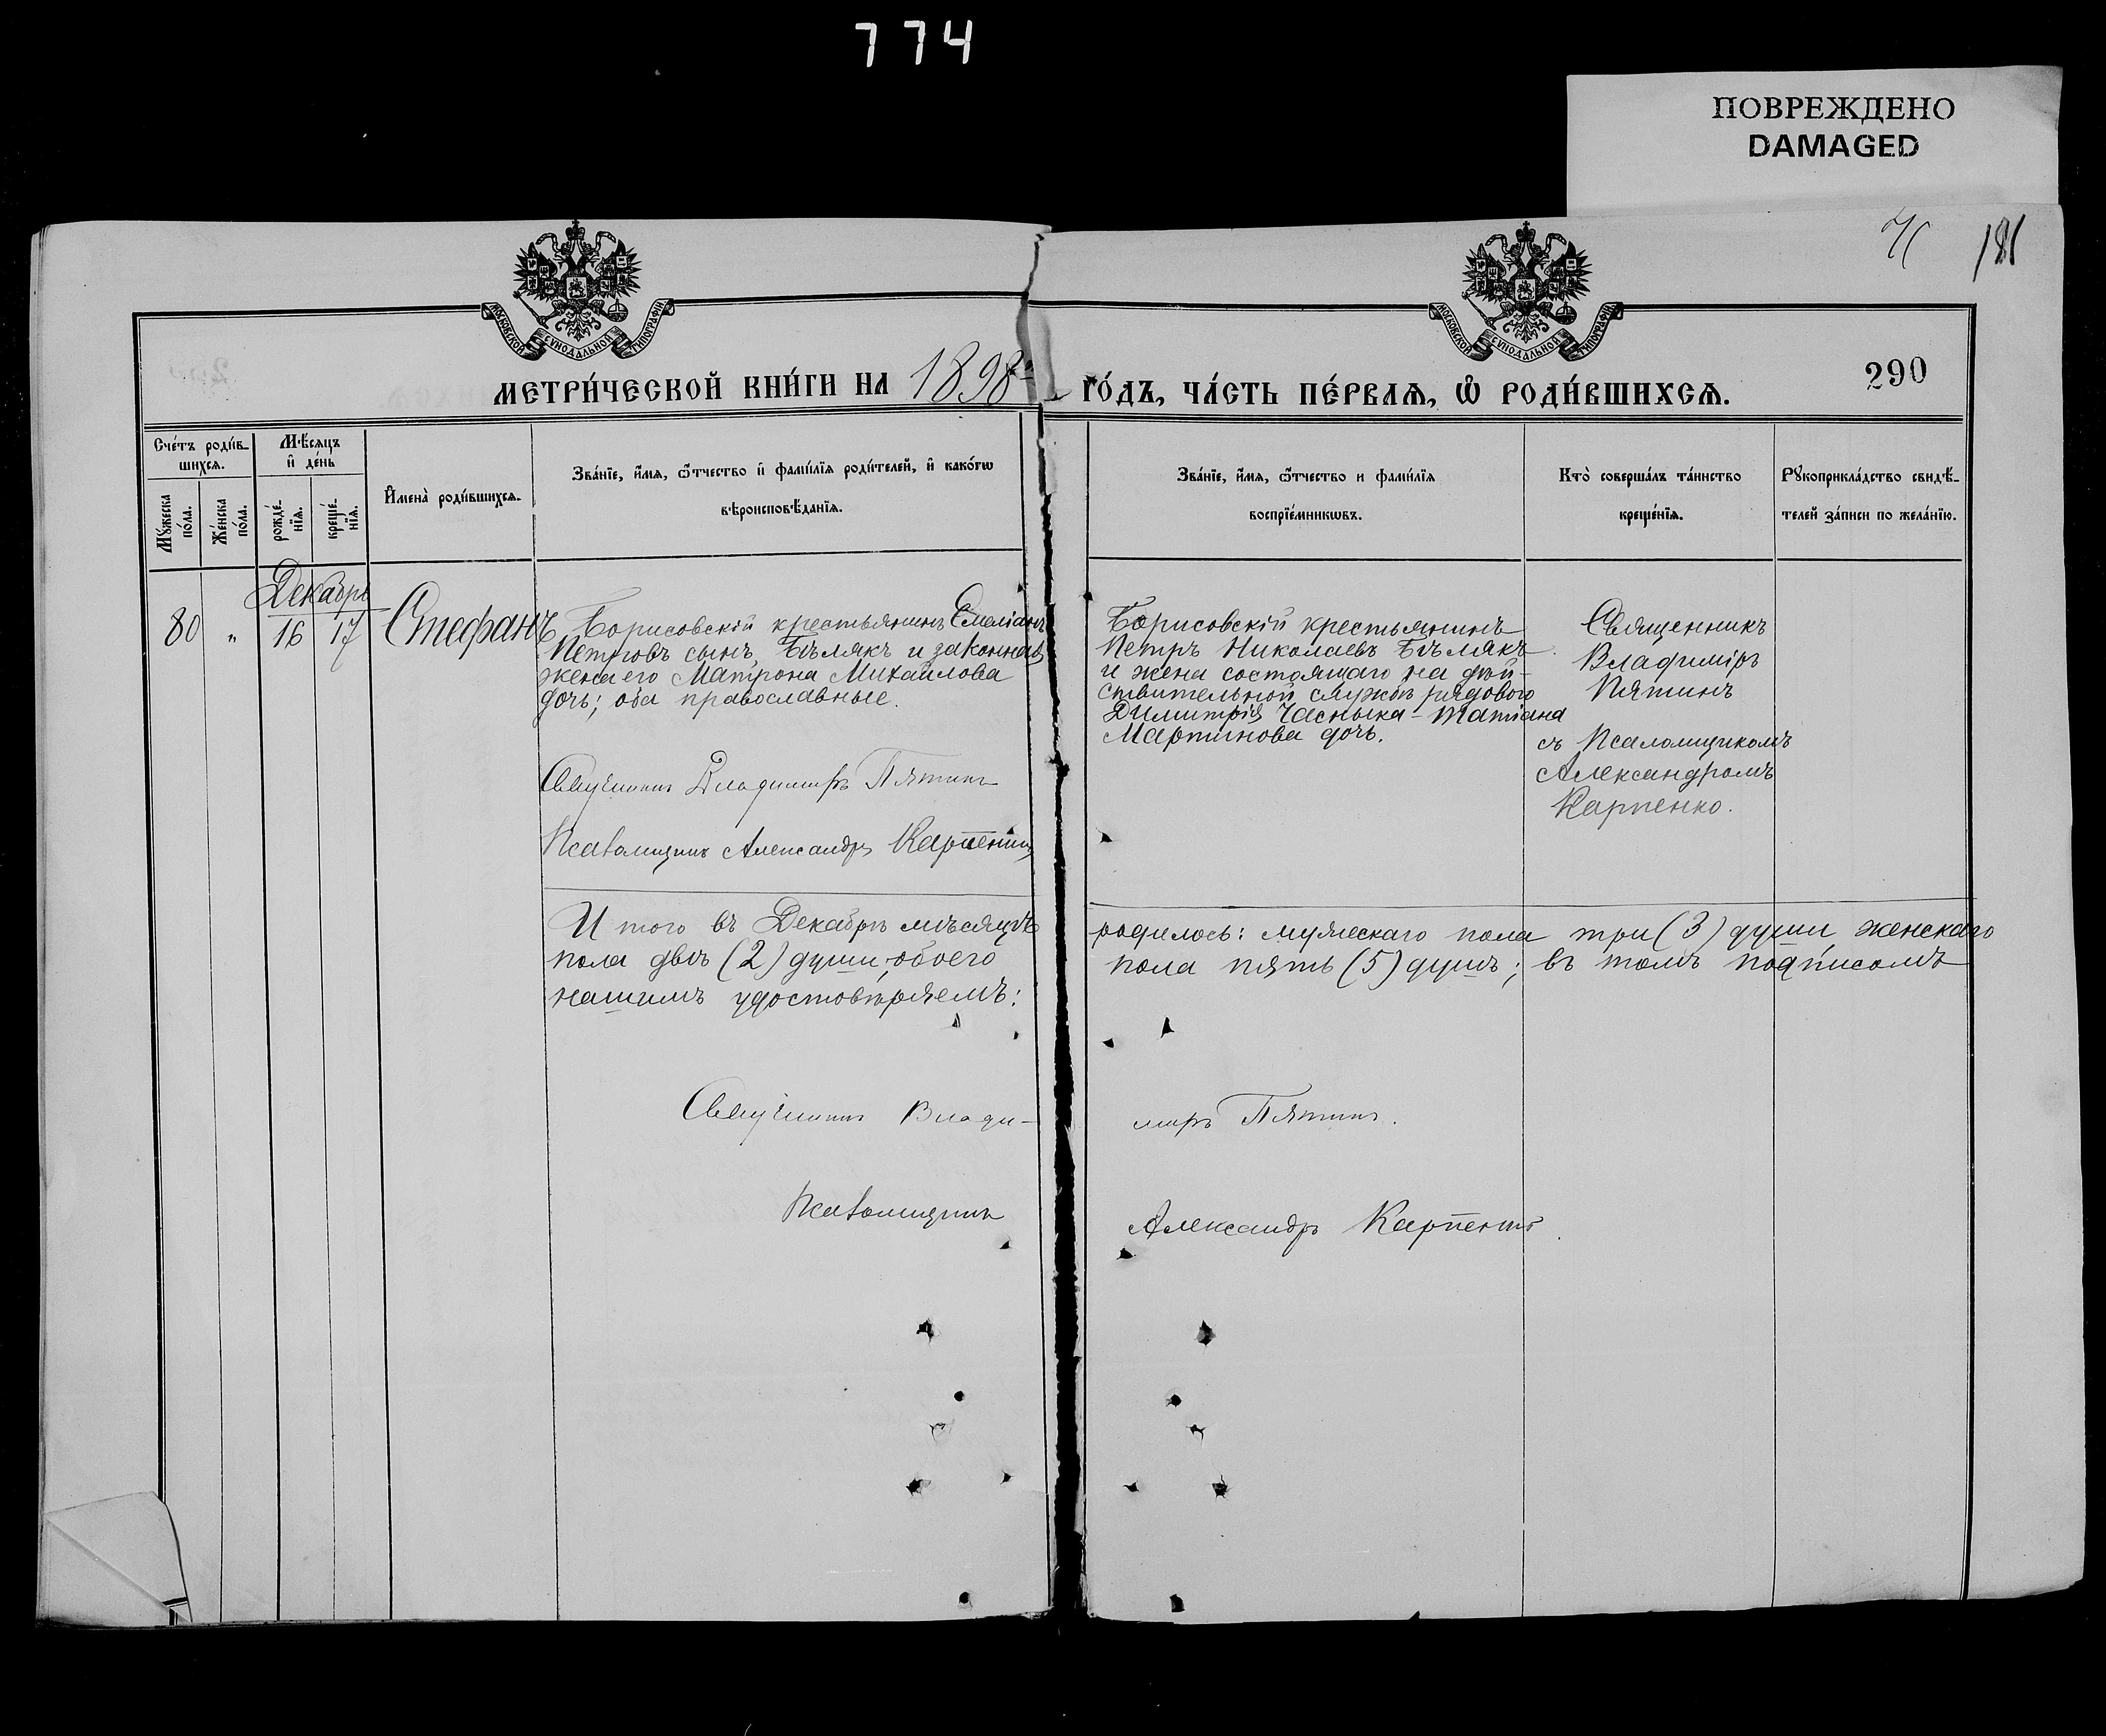 774
ПОВРЕЖДЕНО
DAMAGED
181
МОСКОВСКОЙ СѴНОДАЛЬНОЙ ТИПОГРАФІИ
МОСКОВСКОЙ СѴНОДАЛЬНОЙ ТИПОГРАФІИ
290
МЕТРИ́ЧЕСКОЙ КНИ́ГИ НА 1898 ГО́ДЪ, ЧА́СТЬ ПЕ́РВАѦ, Ѡ҆ РОДИ́ВШИХСѦ.
Сче́тъ роди́в-
шихсѧ.
Мꙋ́жеска
по́ла.
Же́нска
по́ла.
Мѣ́сѧцъ
и҆ де́нь
рожде́-
нїѧ.
креще́-
нїѧ.
И҆мена̀ роди́вшихсѧ.
Зва́нїе, и҆́мѧ, ѻ҆́тчество и҆ фами́лїѧ роди́телей, и҆ како́гѡ
вѣроисповѣ́данїѧ.
Зва́нїе, и҆́мѧ, ѻ҆́тчество и фами́лїѧ
воспрїе́мникѡвъ.
Кто̀ соверша́лъ та́инство
креще́нїѧ.
Рꙋкоприкла́дство свидѣ́-
телей за́писи по жела́нїю.
Декабрь
80 " 16 17 Стефанъ
Борисовскій крестьянинъ Емеліанъ
Петровъ сынъ Бѣлякъ и законная
жена его Матрона Михайлова
дочь; оба православные.
Священникъ Владимиръ Пятинъ
Псаломщикъ Александръ Карпенко
Борисовскій крестьянинъ
Петръ Николаевъ Бѣлякъ
и жена состоящаго на дѣй-
ствительной службѣ рядового
Димитрія Часныка - Татіана
Мартинова дочь.
Священникъ
Владиміръ
Пятинъ
съ Псаломщикомъ
Александромъ
Карпенко.
И того въ Декабрѣ мѣсяцѣ родилось: мужескаго пола три (3) души женскаго
пола двѣ (2) души, обоего пола пять (5) душъ; въ томъ подписомъ
нашимъ удостовѣряемъ:
Священникъ Влади- миръ Пятинъ.
Псаломщикъ Александръ Карпенко